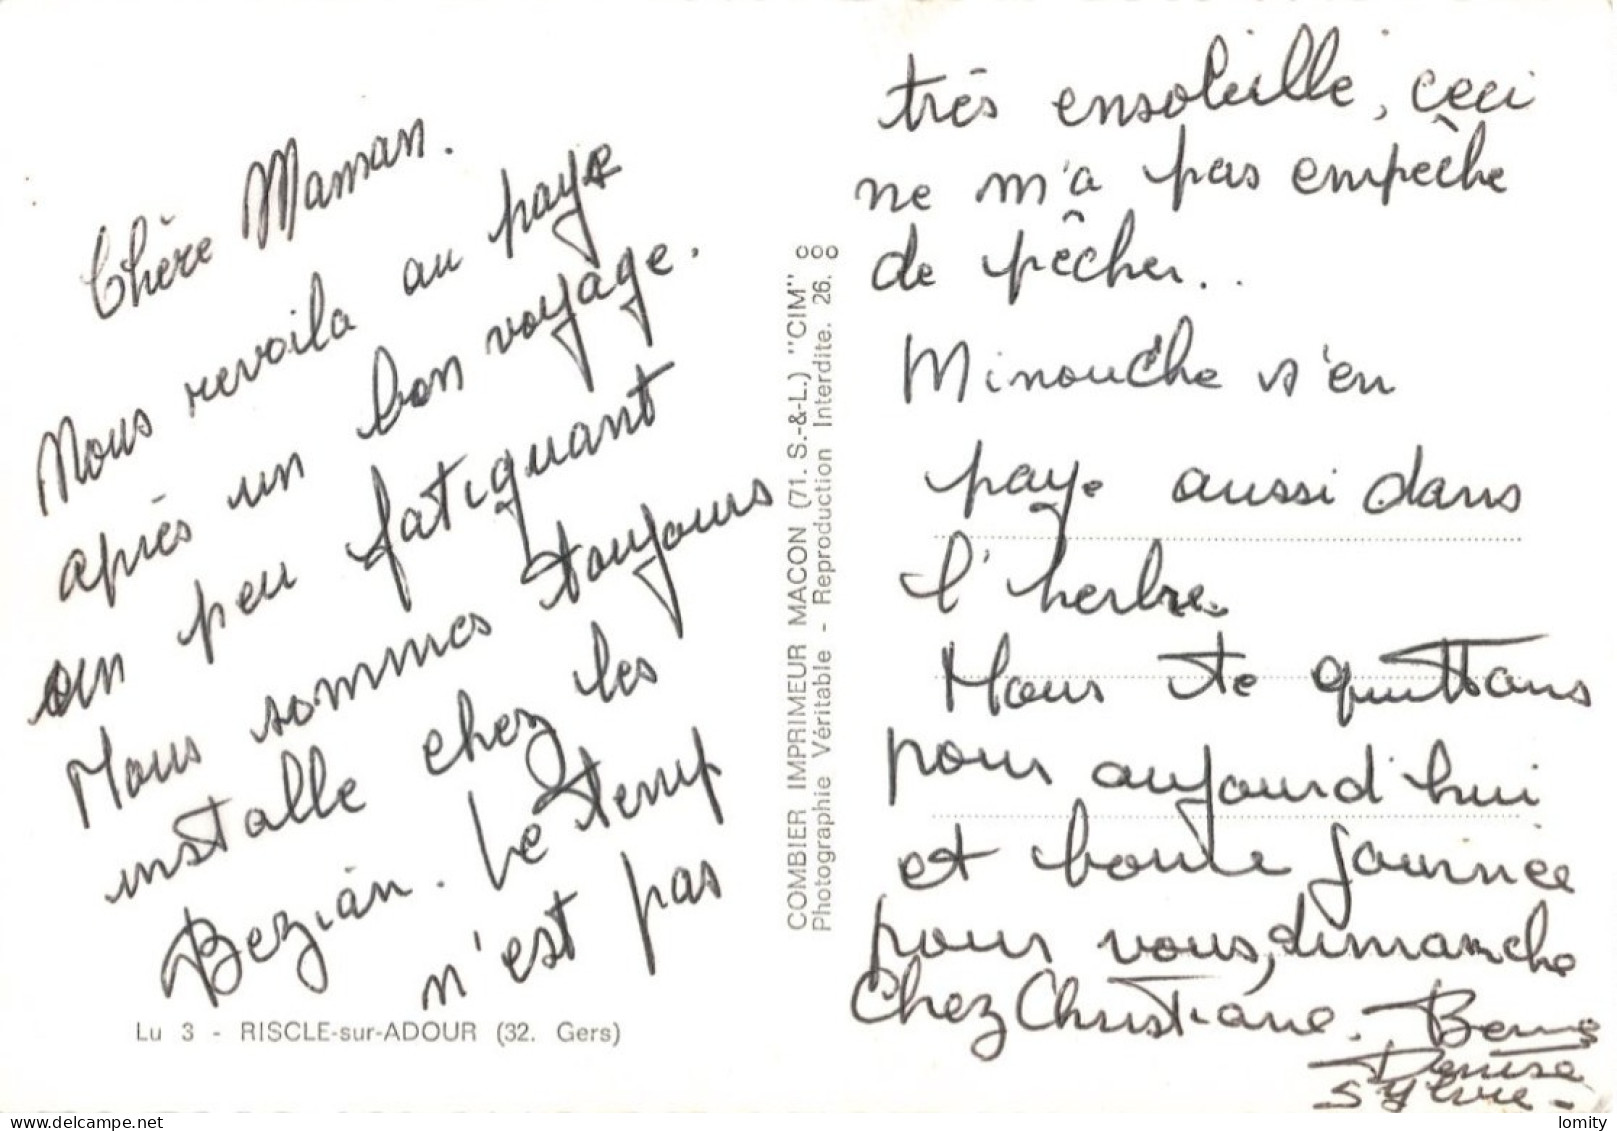 Chère Maman.
Nous revoila au pays
après un bon voyage.
un peu fatiguant
Nous sommes toujours
installe chez les
Bezian. Le temp
n'est pas
Lu 3 - RISCLE-sur-ADOUR (32. Gers)
COMBIER IMPRIMEUR MACON (71. S.-&-L.) "CIM"
Photographie Véritable - Reproduction Interdite. 26.
très ensoleillé, ceci
ne m'a pas empèche
de pêcher..
Minouche s'en
paye aussi dans
l'herbre.
Nous te quittons
pour aujourd'hui
et bonne journée
pour vous, dimanche
Chez Christiane.
Denise
Sylvie -
lomity